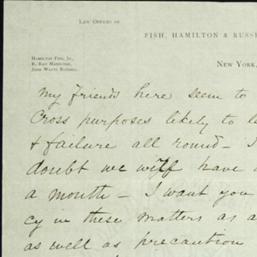 Law Offices of
Fish, Hamilton & Russe
Hamilton Fish, Jr.,
R. Ray Hamilton,
John Watts Russell.
New York,
my friends here seem to
cross purposes likely to le
& failure all round - I
doubt we will have a
a month - I want you
cy in these matters as a
as well as precaution